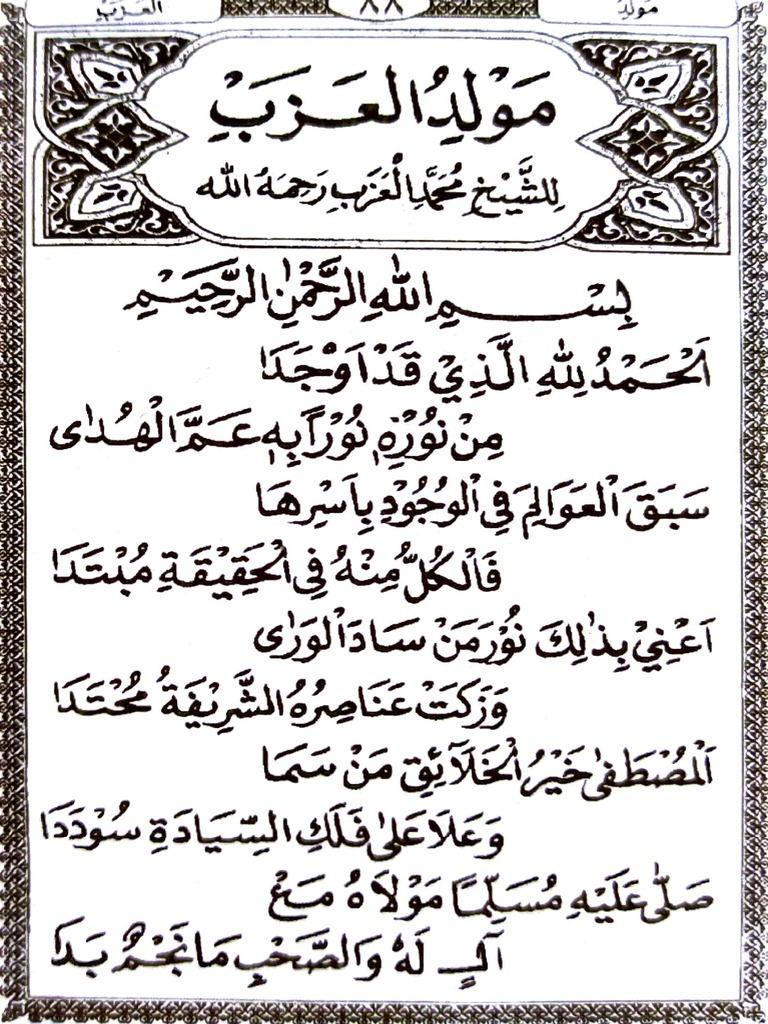 مولد ٨٨ العزب
مَوْلِدُ الْعَزَبِ
لِلشَّيْخِ مُحَمَّدِ الْعَزَبِ رَحِمَهُ الله
بِسْمِ اللهِ الرَّحْمٰنِ الرَّحِيْمِ
اَلْحَمْدُ لِلّٰهِ الَّذِيْ قَدْ اَوْجَدَا
مِنْ نُوْرِهٖ نُوْرًا بِهٖ عَمَّ الْهُدٰى
سَبَقَ الْعَوَالِمَ فِي الْوُجُوْدِ بِاَسْرِهَا
فَالْكُلُّ مِنْهُ فِي الْحَقِيْقَةِ مُبْتَدَا
اَعْنِيْ بِذٰلِكَ نُوْرَ مَنْ سَادَ الْوَرٰى
وَزَكَتْ عَنَاصِرُهُ الشَّرِيْفَةُ مُحْتَدَا
اَلْمُصْطَفٰى خَيْرُ الْخَلَآئِقِ مَنْ سَمَا
وَعَلَا عَلٰى فَلَكِ السِّيَادَةِ سُوْدَدَا
صَلّٰى عَلَيْهِ مُسَلِّمًا مَوْلَاهُ مَعْ
آلٍ لَهٗ وَالصَّحْبِ مَا نَجْمٌ بَدَا